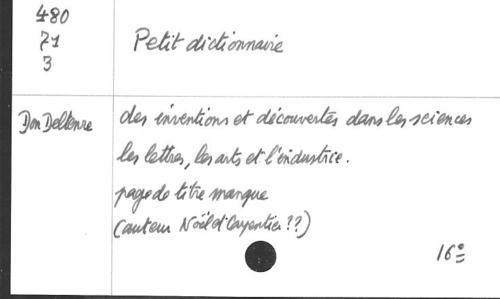 480
71
3
Petit dictionnaire
Don Deltenre
des inventions et découvertes dans les sciences
les lettres, les arts et l'industrie.
page de titre manque
(auteur Noël et Carpentier ??)
16º